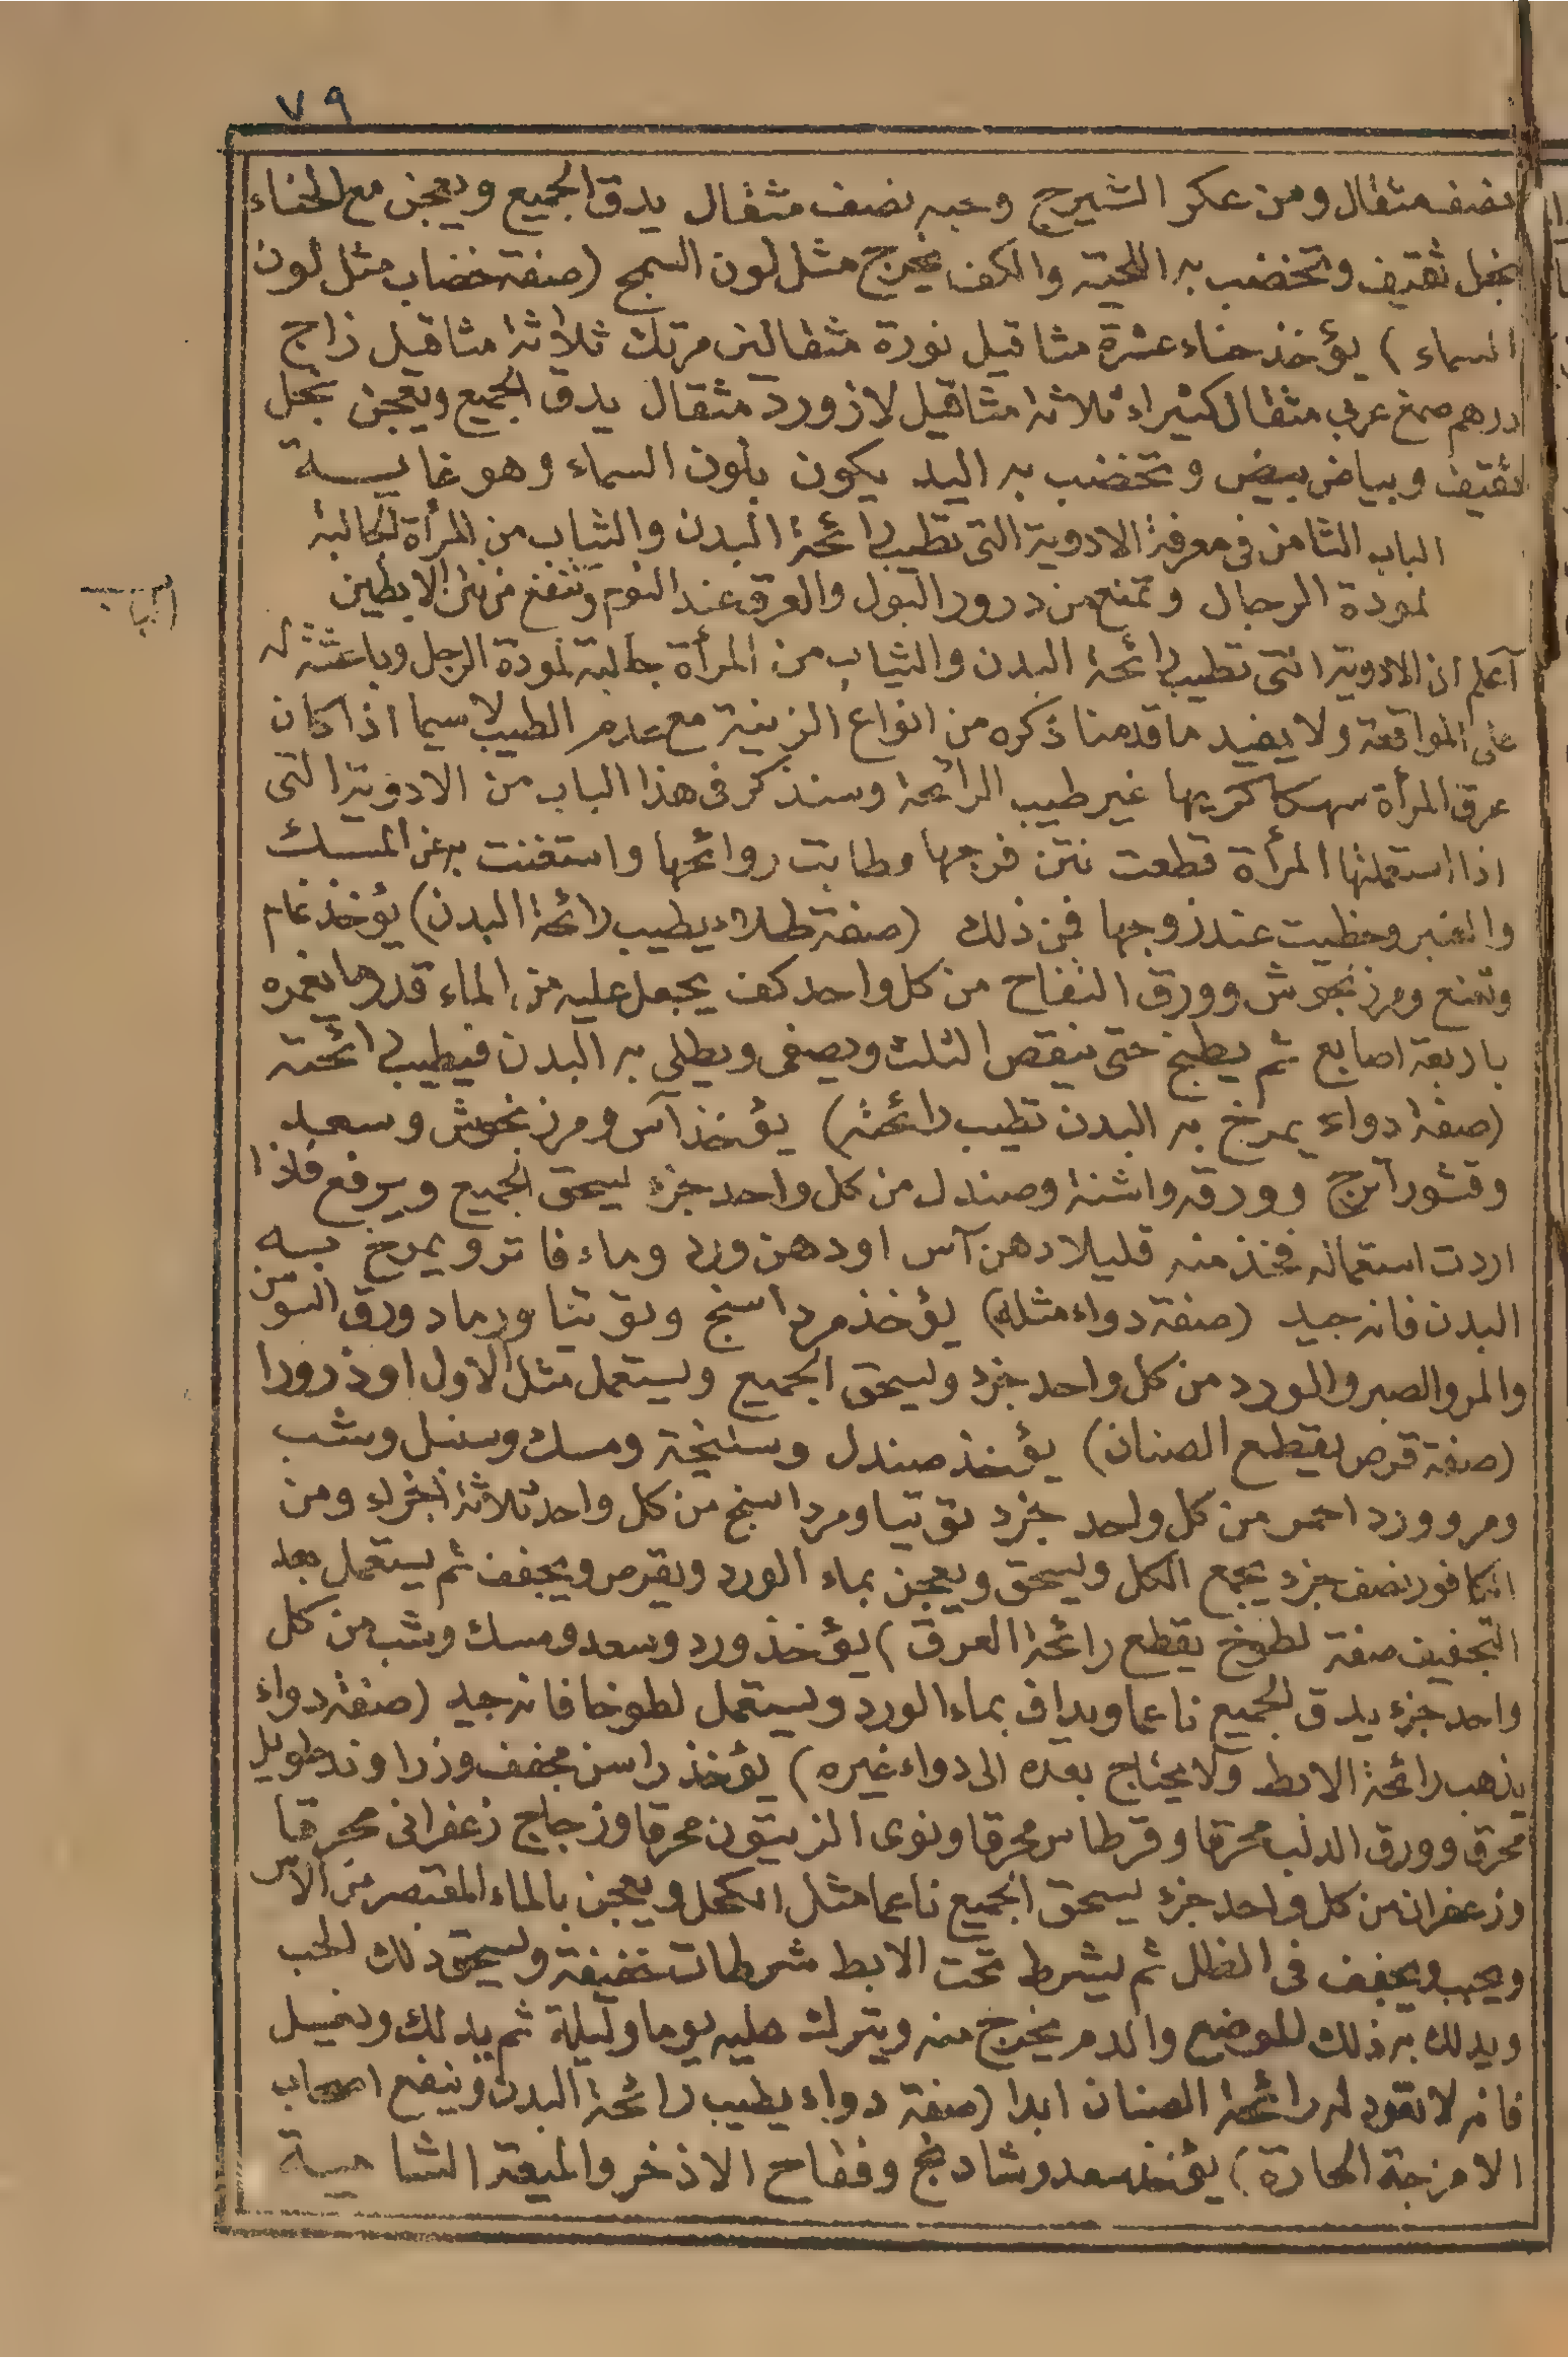 ٧٩
نصف مثقال ومن عكر الشيرج وحبه نصف مثقال يدق الجميع ويعجن مع الحناء
بخل ثقيف وتخضب به اللحية والكف يخرج مثل لون السبج (صفة خضاب مثل لون
السماء) يؤخذ حناء عشرة مثاقيل نورة مثقالين مرتك ثلاثة مثاقيل زاج
درهم صمغ عربي مثقال كثيراء ثلاثة مثاقيل لازورد مثقال يدق الجميع ويعجن بخل
ثقيف وبياض بيض وتخضب به اليد يكون بلون السماء وهو غاية
الباب الثامن في معرفة الادوية التى تطيب رائحة البدن والثياب من المرأة الجالبة
لمودة الرجال وتمنع من درور البول والعرق عند النوم وتنفع من نتن الابطين
آعلم ان الادوية التى تطيب رائحة البدن والثياب من المرأة جالبة لمودة الرجل وباعثة له
على المواقعة ولا يفيد ما قدمنا ذكره من انواع الزينة مع عدم الطيب لا سيما اذا كان
عرق المرأة سهكا كريها غير طيب الرائحة وسنذكر فى هذا الباب من الادوية التى
اذا استعملتها المرأة قطعت نتن فرجها وطابت روائحها واستغنت به عن المسك
والعنبر وحظيت عند زوجها فمن ذلك (صفة طلاء يطيب رائحة البدن) يؤخذ نمام
ونعنع ومرزنجوش وورق التفاح من كل واحد كف يجعل عليه من الماء قدر ما يغمره
باربعة اصابع ثم يطبخ حتى ينقص الثلث ويصفى ويطلى به البدن فيطيب رائحته
(صفة دواء يمرخ به البدن تطيب رائحته) يؤخذ آس ومرزنجوش وسعد
وقشور آترج وورقه واشنة وصندل من كل واحد جزء يسحق الجميع ويرفع فاذا
اردت استعماله فخذ منه قليلا دهن آس او دهن ورد وماء فاتر ويمرخ به
البدن فانه جيد (صفة دواء مثله) يؤخذ مرداسنج وتوتيا ورماد ورق السوسن
والمر والصبر والورد من كل واحد جزء ويسحق الجميع ويستعمل مثل الاول او ذرورا
(صفة قرص يقطع الصنان) يؤخذ صندل وسليخة ومسك وسنبل وشب
ومر وورد احمر من كل واحد جزء توتيا ومرداسنج من كل واحد ثلاثة اجزاء ومن
الكافور نصف جزء يجمع الكل ويسحق ويعجن بماء الورد ويقرص ويجفف ثم يستعمل بعد
التجفيف صفة لطوخ يقطع رائحة العرق) يؤخذ ورد وسعد ومسك وشب من كل
واحد جزء يدق الجميع ناعما ويداف بماء الورد ويستعمل لطوخا فانه جيد (صفة دواء
يذهب رائحة الابط ولا يحتاج بعده الى دواء غيره) يؤخذ راسن مجفف وزراوند طويل
محرق وورق الدلب محرقا وقرطاس محرقا ونوى الزيتون محرقا وزجاج زعفرانى محرقا
وزعفران من كل واحد جزء يسحق الجميع ناعما مثل الكحل ويعجن بالماء المعتصر من الآس
ويحبب ويجفف فى الظل ثم يشرط تحت الابط شرطات خفيفة ويسحق ذلك الحب
ويدلك به ذلك الموضع والدم يخرج منه ويترك عليه يوما وليلة ثم يدلك ويغسل
فانه لا تعود له رائحة الصنان ابدا (صفة دواء يطيب رائحة البدن وينفع اصحاب
الامزجة الحارة) يؤخذ سعد وشادنج وفقاح الاذخر والميعة الشامية